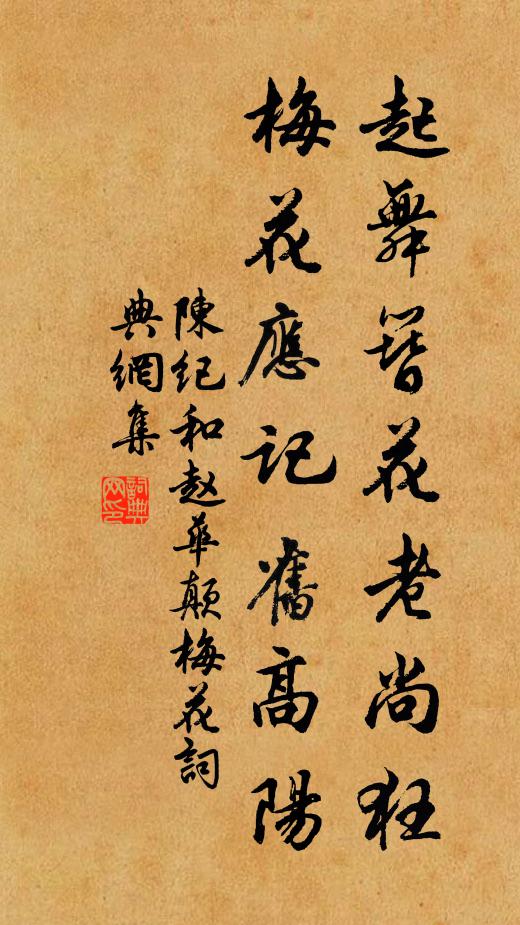 起舞簪花老尚狂
梅花應記舊高陽
陳纪和赵華顛梅花詞
典網集
詞典网印